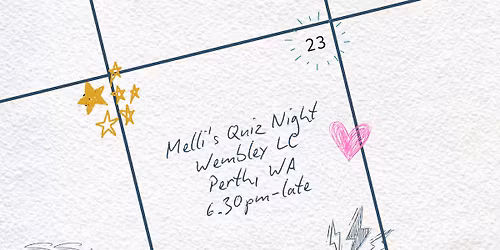 23
Melli's Quiz Night
Wembley LC
Perth, WA
6.30pm-late